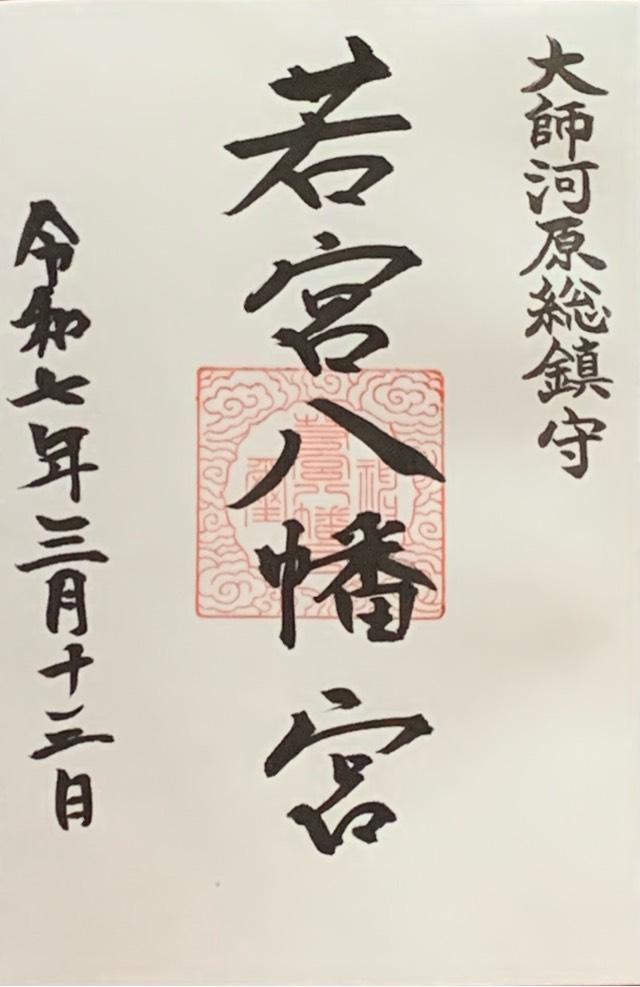 大師河原総鎮守
若宮八幡宮
令和七年三月十三日